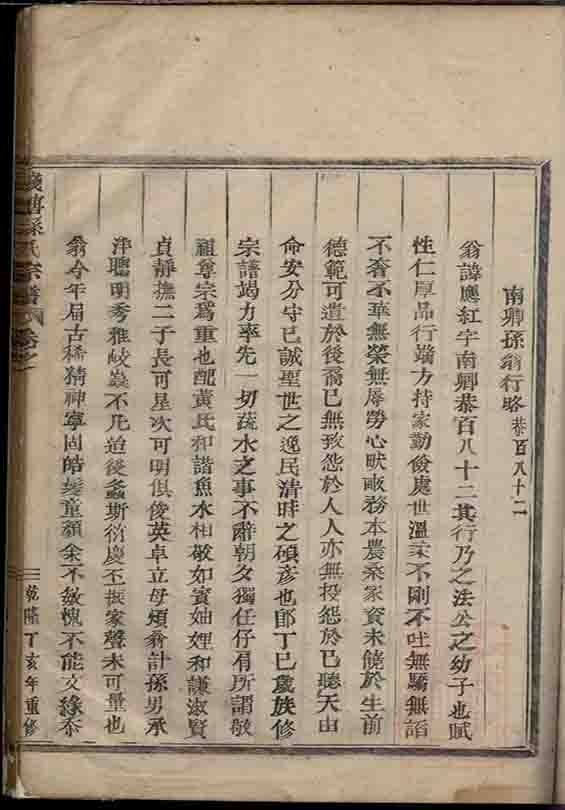 南卿孫翁行略 恭百八十二
翁諱應紅字南卿恭百八十二其行乃之法公之幼子也賦
性仁厚品行端方持家勤儉處世溫柔不剛不吐無驕無諂
不奢不華無榮無辱勞心畎畝務本農桑家資未饒於生前
德範可遺於後裔已無致怨於人人亦無投怨於已聽天由
命安分守已誠聖世之逸民清時之碩彥也卽丁巳歲族修
宗譜竭力率先一切疏水之事不辭朝夕獨任仔肩所謂敬
祖尊宗爲重也配黃氏和諧魚水相敬如賓妯娌和謙淑賢
貞靜撫二子長可星次可明俱俊英卓立毋煩翁計孫男承
泮聰明秀雅岐嶷不凡迨後螽斯衍慶丕振家聲未可量也
翁今年届古稀精神寧固皓髮童顏余不敏愧不能文緣忝
孫氏宗譜 卷之一
乾隆丁亥年重修